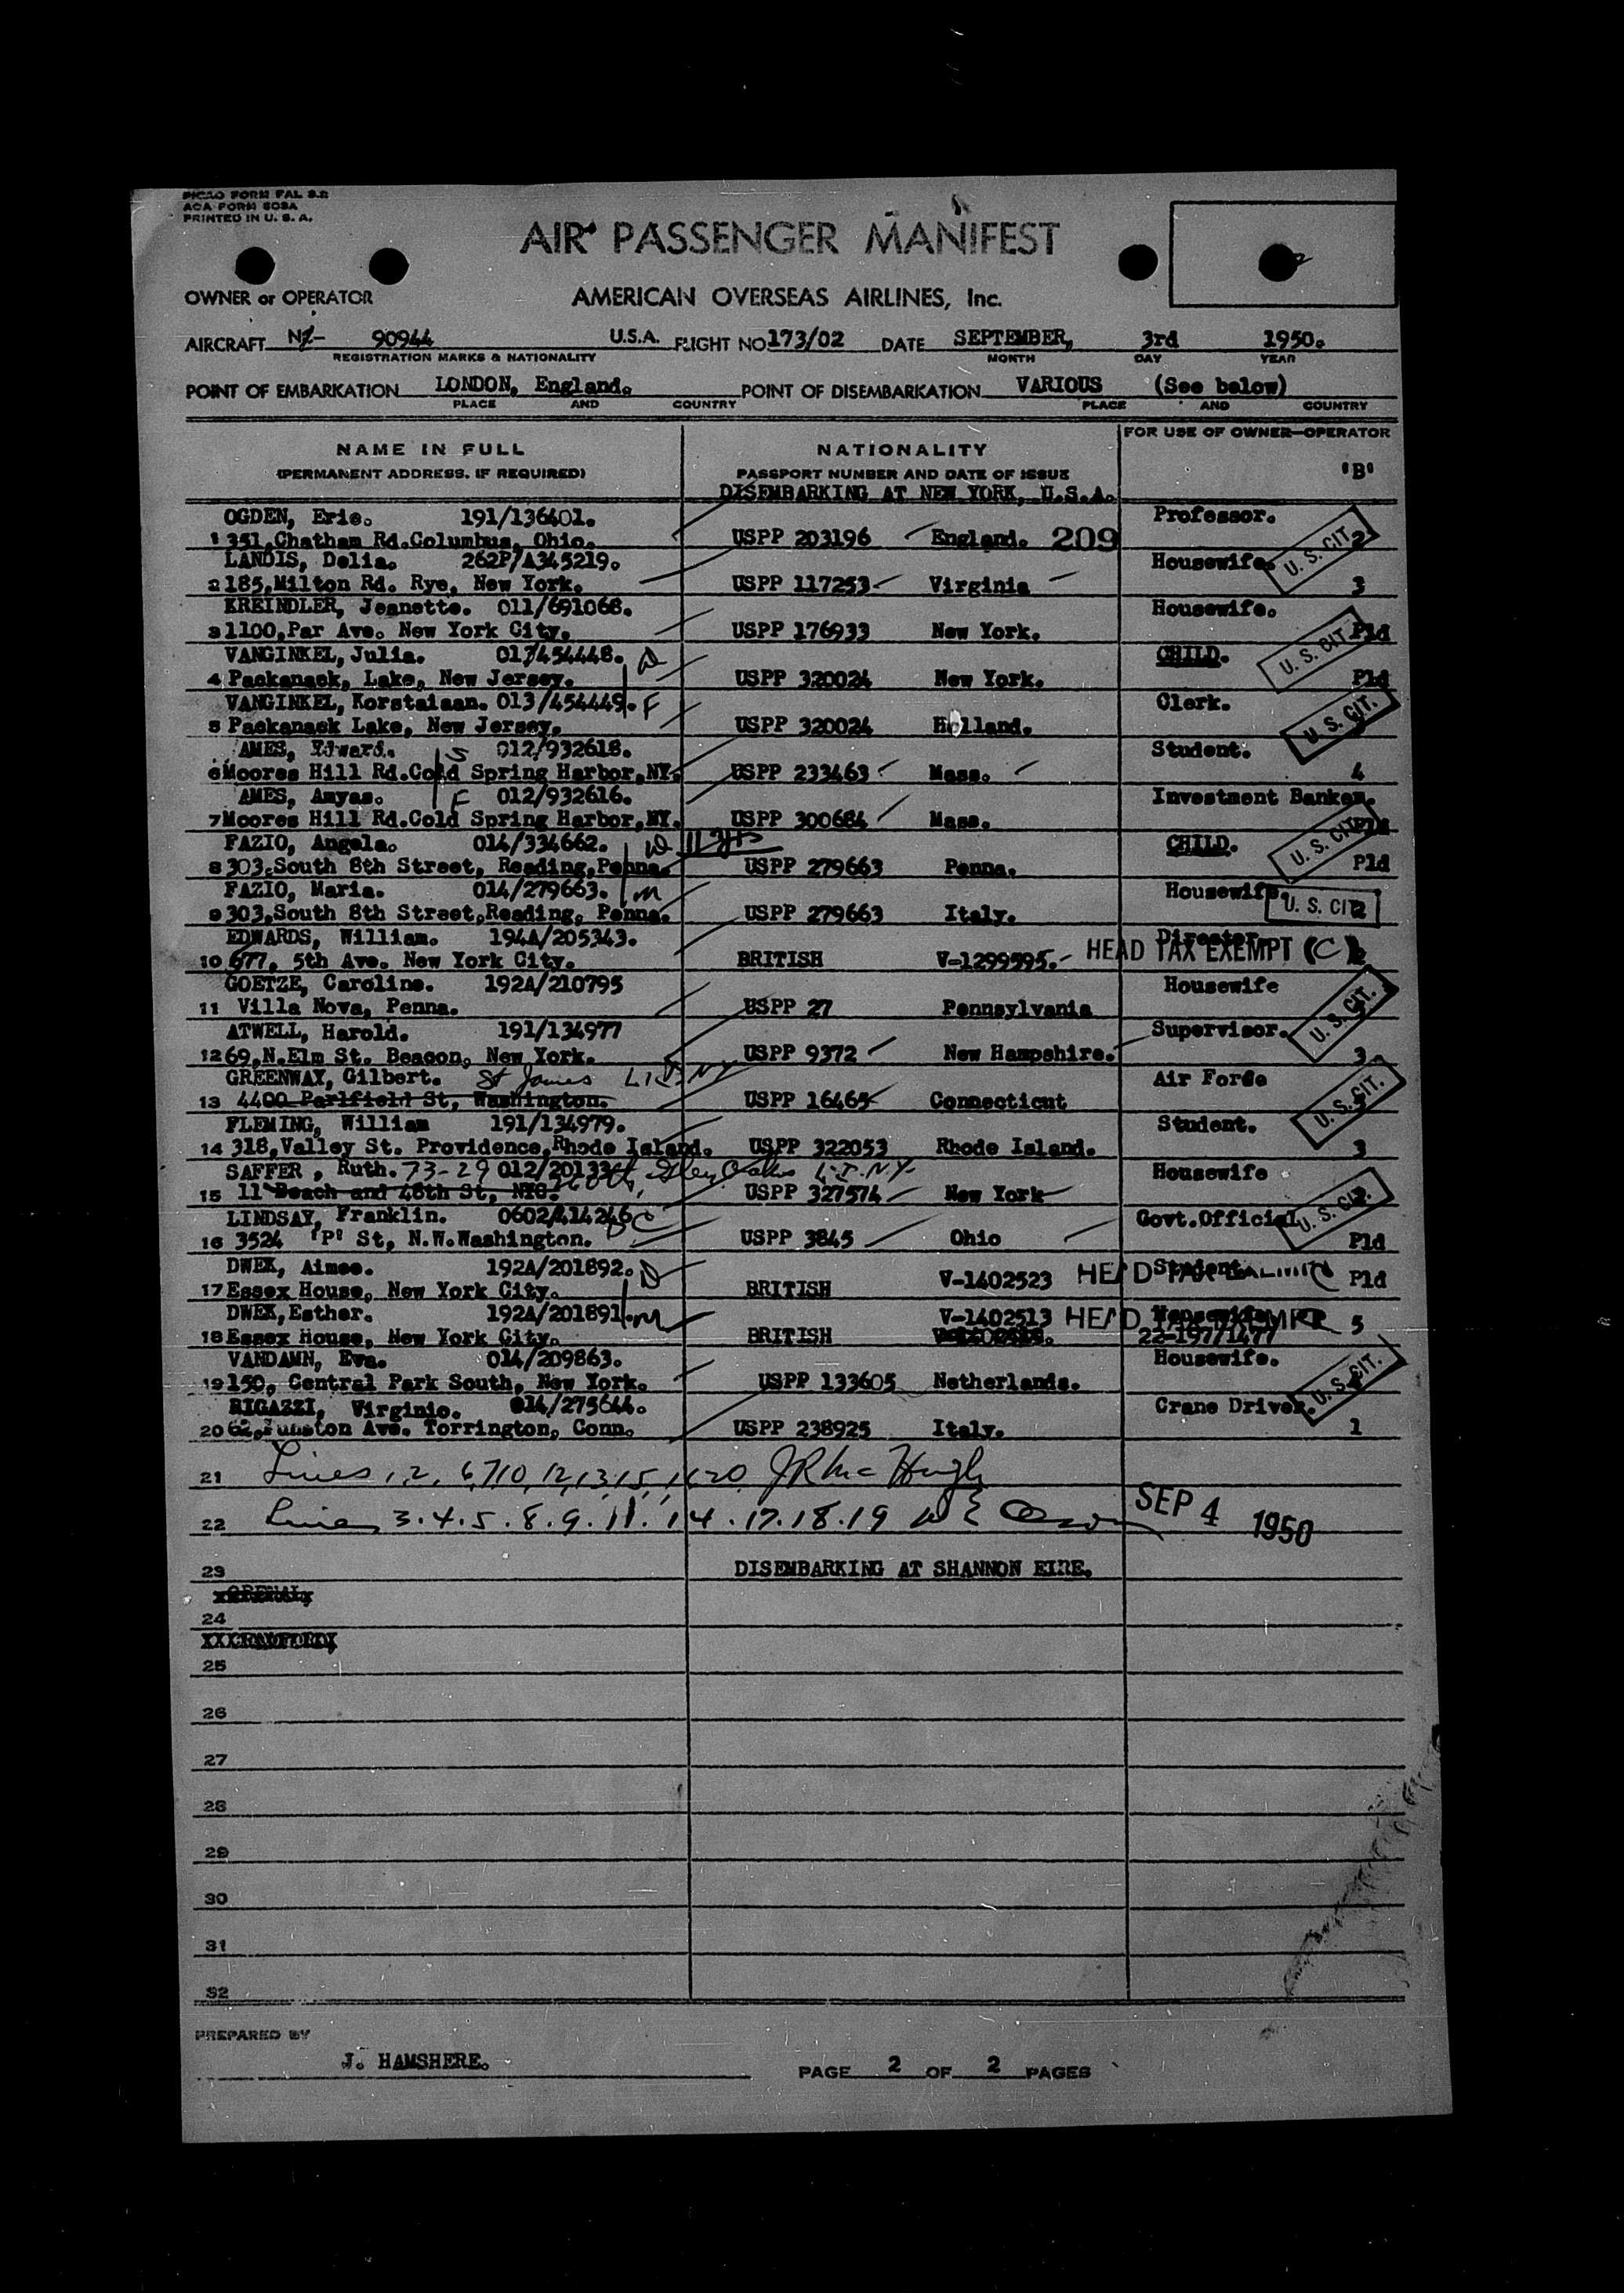 PICAO FORM FAL 3.2
ACA FORM 503A
PRINTED IN U. S. A.
AIR PASSENGER MANIFEST
OWNER or OPERATOR AMERICAN OVERSEAS AIRLINES, Inc.
AIRCRAFT 90944 U.S.A. FLIGHT NO 173/02 DATE SEPTEMBER, 3rd 1950.
REGISTRATION MARKS & NATIONALITY MONTH DAY YEAR
POINT OF EMBARKATION LONDON, England. POINT OF DISEMBARKATION VARIOUS (See below)
PLACE AND COUNTRY PLACE AND COUNTRY
FOR USE OF OWNER—OPERATOR
NAME IN FULL NATIONALITY
(PERMANENT ADDRESS, IF REQUIRED) PASSPORT NUMBER AND DATE OF ISSUE 'B'
DISEMBARKING AT NEW YORK, U.S.A.
OGDEN, Eric. 191/136401. Professor.
1 351, Chatham Rd. Columbus, Ohio. USPP 203196 England. 209 U. S. CIT. 2
LANDIS, Delia. 262P/A345219. Housewife.
2 185, Milton Rd. Rye, New York. USPP 117253 Virginia 3
KREINDLER, Jeanette. 011/691068. Housewife.
3 1100, Par Ave. New York City. USPP 176933 New York. U. S. CIT. Pld
VANGINKEL, Julia. 017/454448. D CHILD.
4 Packanack, Lake, New Jersey. USPP 320024 New York. Pld
VANGINKEL, Korstaiaan. 013/454449. F Clerk.
5 Packanack Lake, New Jersey. USPP 320024 Holland. U. S. CIT.
AMES, Edward. S 012/932618. Student.
6 Moores Hill Rd. Cold Spring Harbor, NY. USPP 233463 Mass. 4
AMES, Amyas. F 012/932616. Investment Banker.
7 Moores Hill Rd. Cold Spring Harbor, NY. USPP 300684 Mass. U. S. CIT. Pld
FAZIO, Angela. 014/334662. D 11 yrs CHILD.
8 303, South 8th Street, Reading, Penna. USPP 279663 Penna. Pld
FAZIO, Maria. 014/279663. M Housewife.
9 303, South 8th Street, Reading, Penna. USPP 279663 Italy. U. S. CIT. 2
EDWARDS, William. 194A/205343. Director.
10 677, 5th Ave. New York City. BRITISH V-1299595. HEAD TAX EXEMPT (C)
GOETZE, Caroline. 192A/210795 Housewife
11 Villa Nova, Penna. USPP 27 Pennsylvania U. S. CIT.
ATWELL, Harold. 191/134977 Supervisor.
12 69, N. Elm St. Beacon, New York. USPP 9372 New Hampshire. 3
GREENWAY, Gilbert. St James L.I. N.Y. Air Force
13 4400 Parlfield St, Washington. USPP 16465 Connecticut U. S. CIT.
FLEMING, William 191/134979. Student.
14 318, Valley St. Providence, Rhode Island. USPP 322053 Rhode Island. 3
SAFFER, Ruth. 73-29 012/20133 Oaks L.I. N.Y. Housewife
15 11 Beach and 48th St, NYC. USPP 327574 New York U. S. CIT. 2
LINDSAY, Franklin. 0602/414246 DC Govt. Official
16 3524 'P' St, N.W. Washington. USPP 3845 Ohio Pld
DWEK, Aimee. 192A/201892. D Student
17 Essex House, New York City. BRITISH V-1402523 HEAD TAX Pld
DWEK, Esther. 192A/201891. M V-1402513 HEAD Housewife 5
18 Essex House, New York City. BRITISH 22-197/1477
VANDAMN, Eva. 014/209863. Housewife.
19 150, Central Park South, New York. USPP 133605 Netherlands. U. S. CIT.
RIGAZZI, Virginio. 014/275644. Crane Driver.
20 62, Funston Ave. Torrington, Conn. USPP 238925 Italy. 1
21 Lines 1, 2, 6, 7, 10, 12, 13, 15, 16, 20 JR McHugh
22 Lines 3.4.5.8.9.11.14.17.18.19 SEP 4 1950
23 DISEMBARKING AT SHANNON EIRE.
24
25
26
27
28
29
30
31
32
PREPARED BY
J. HAMSHERE.
PAGE 2 OF 2 PAGES